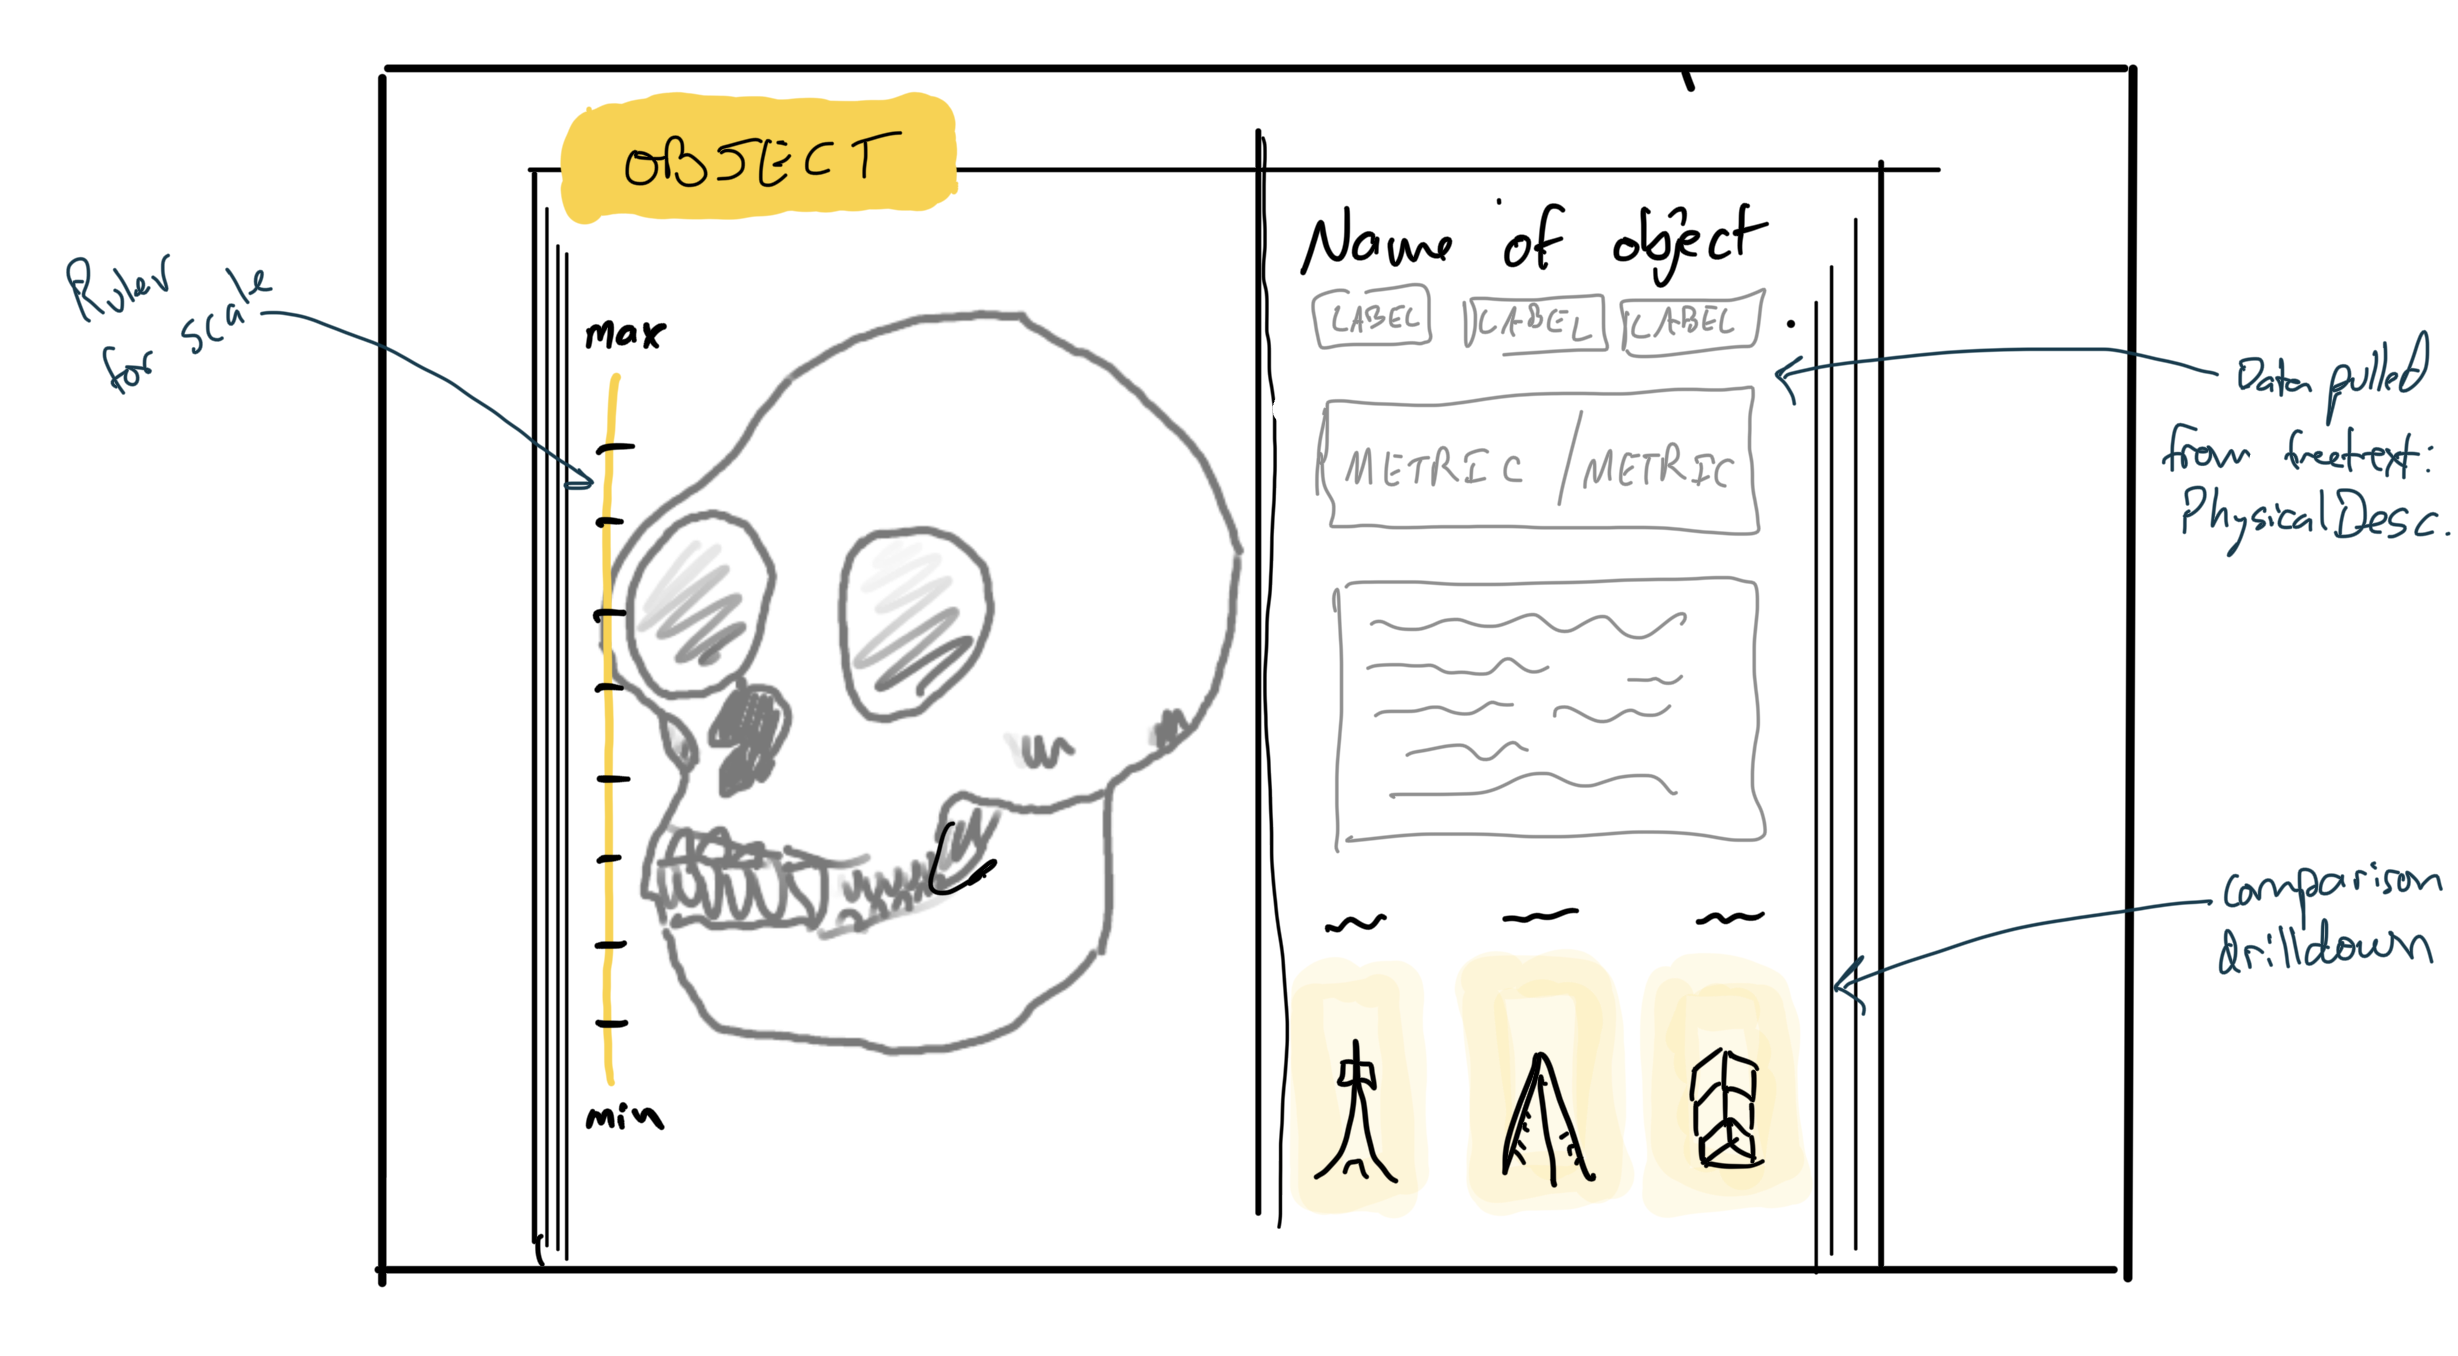 OBJECT
Ruler
for scale
max
min
Name of object
LABEL LABEL LABEL
METRIC / METRIC
Data pulled
from freetext:
PhysicalDesc.
comparison
drilldown